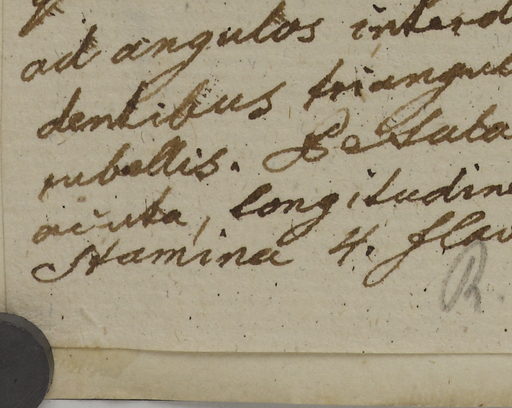 ad angulos interd
dentibus triangul
rubellis. Petala
acuta, longitudin
Stamina 4. flav
R.